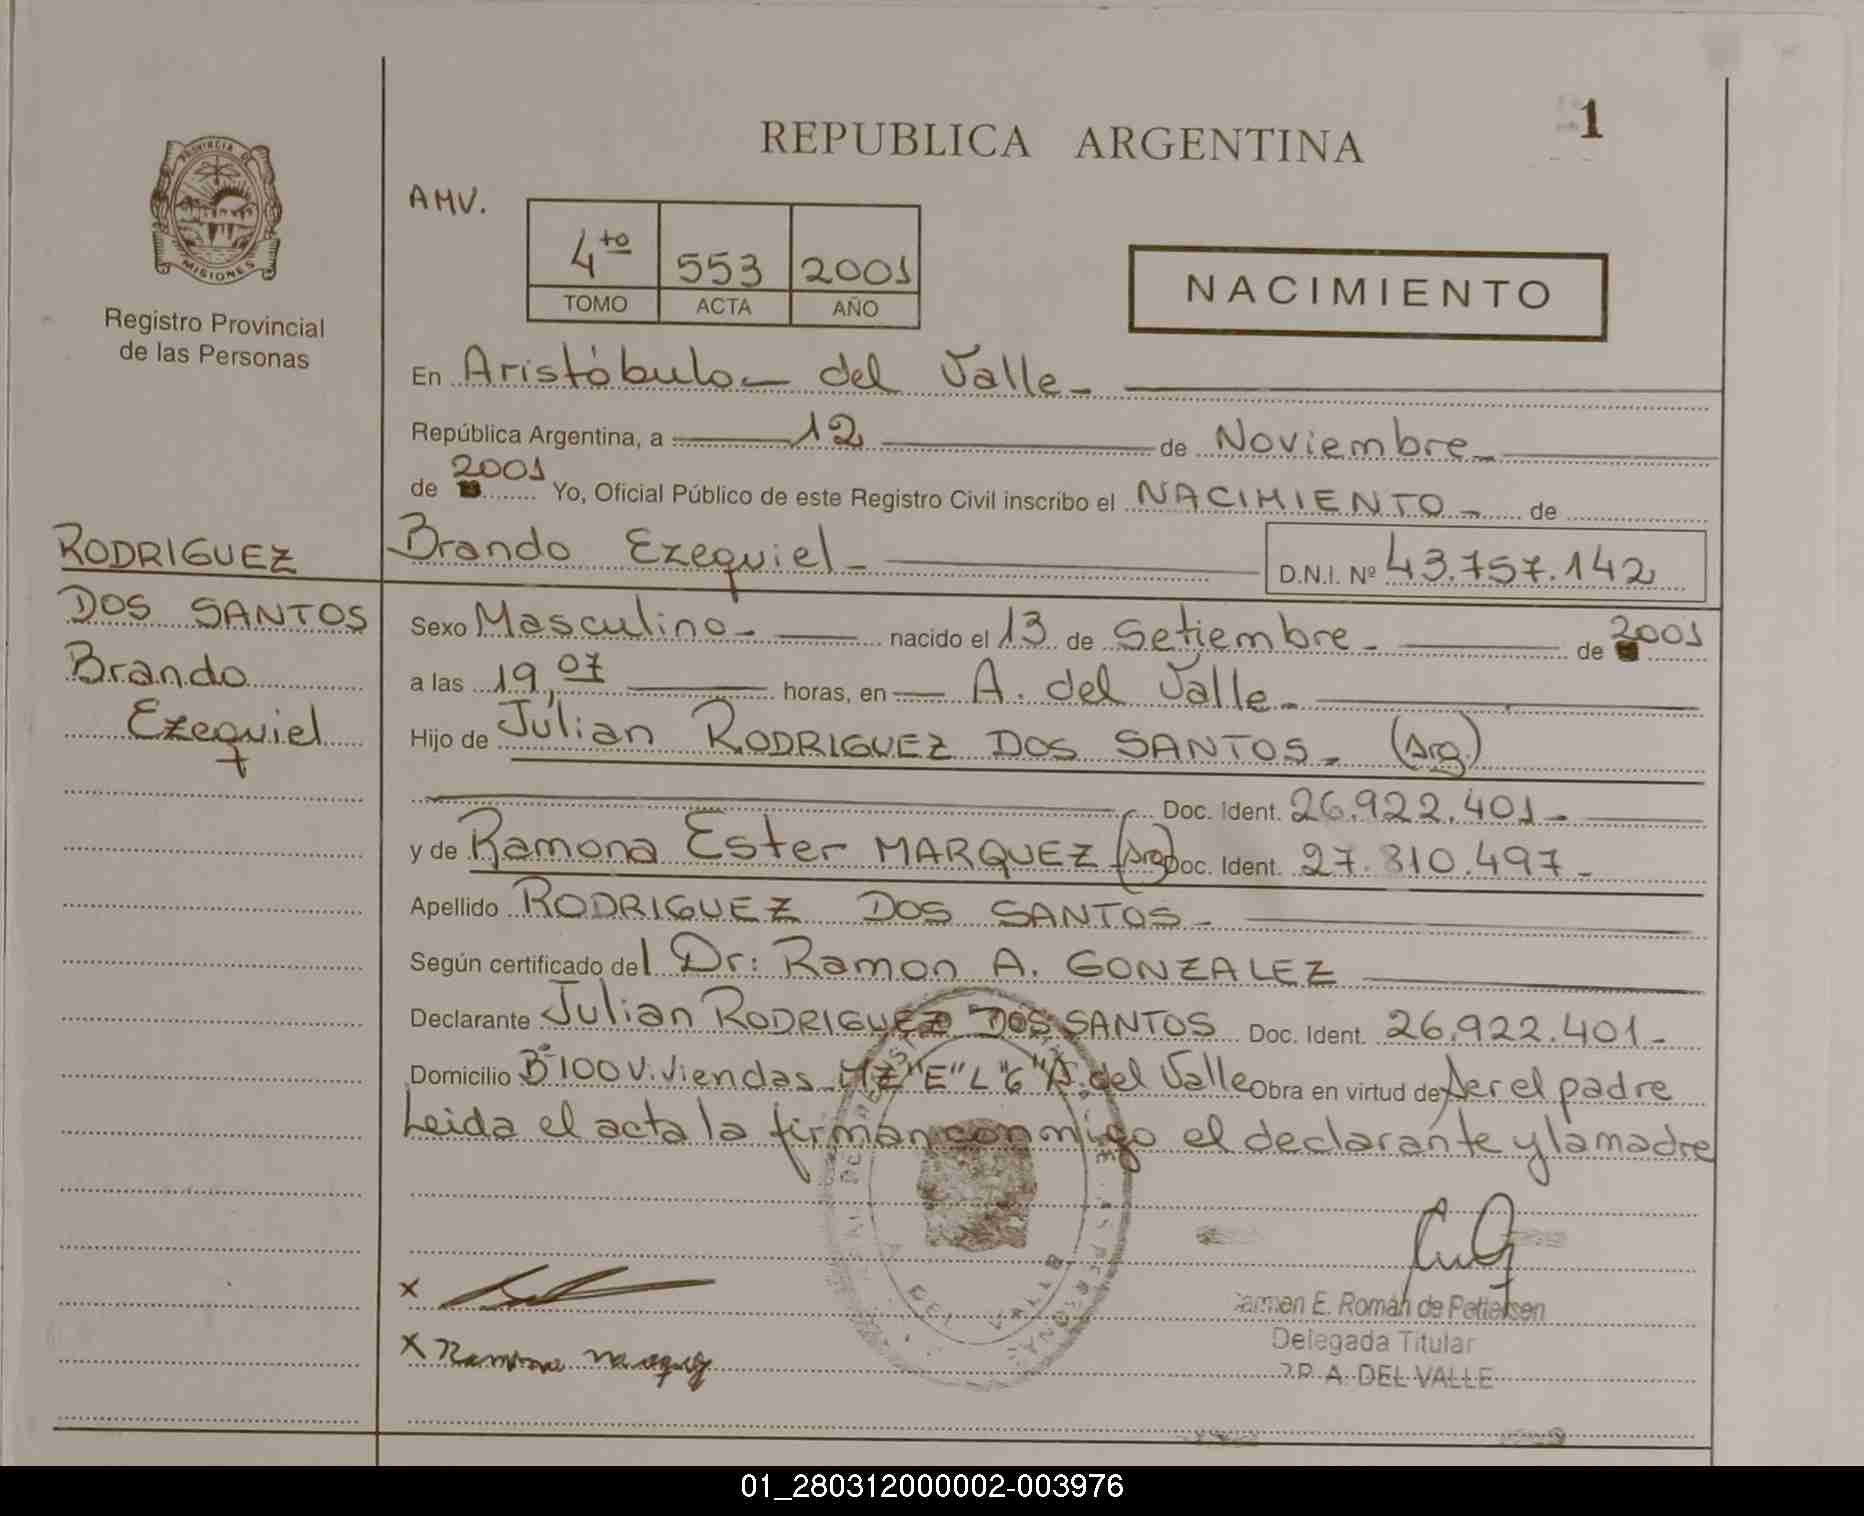 REPUBLICA ARGENTINA
1
PROVINCIA DE
MISIONES
Registro Provincial
de las Personas
AMV.
4to 553 2001
TOMO ACTA AÑO
NACIMIENTO
En Aristóbulo del Valle
República Argentina, a 12 de Noviembre
de 2001 Yo, Oficial Público de este Registro Civil inscribo el NACIMIENTO de
RODRIGUEZ
DOS SANTOS
Brando
Ezequiel
Brando Ezequiel D.N.I. Nº 43.757.142
Sexo Masculino nacido el 13 de Setiembre de 2001
a las 19,07 horas, en A. del Valle
Hijo de Julian RODRIGUEZ DOS SANTOS (Arg.)
Doc. Ident. 26.922.401
y de Ramona Ester MARQUEZ (Arg) Doc. Ident. 27.810.497
Apellido RODRIGUEZ DOS SANTOS
Según certificado del Dr: Ramon A. GONZALEZ
Declarante Julian RODRIGUEZ DOS SANTOS Doc. Ident. 26.922.401
Domicilio Bº 100 Viviendas MZ "E" L "6" A. del Valle Obra en virtud de ser el padre
Leida el acta la firman conmigo el declarante y la madre
X
X Ramona Marquez
DEL VALLE
Carmen E. Román de Pettersen
Delegada Titular
A. DEL VALLE
01_280312000002-003976